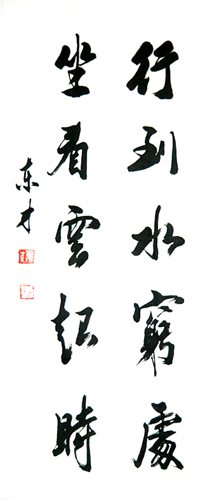 行到水窮處
坐看雲起時
东才